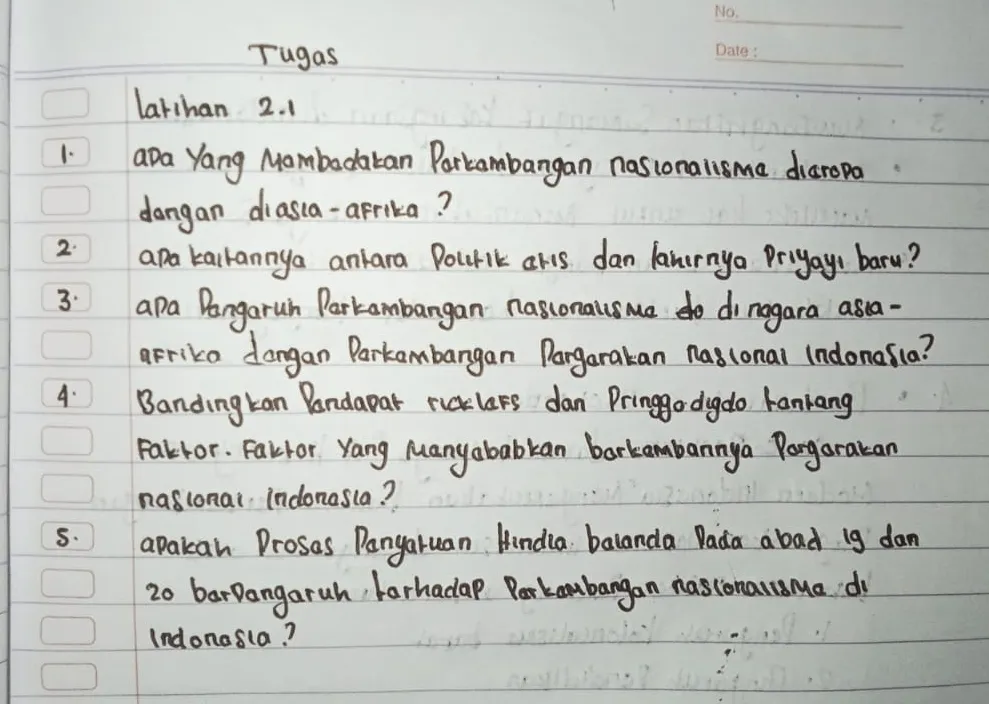 No.
Date:
Tugas
latihan 2.1
1. apa Yang Membedakan Perkembangan nasionalisme dieropa
dengan diasia-aFrika?
2. apa kaitannya antara Politik etis dan lahirnya Priyayi baru?
3. apa Pengaruh Perkembangan nasionalisme do di negara asia-
aFrika dengan Perkembangan Pergerakan nasional Indonesia?
4. Bandingkan Pendapat ricklefs dan Pringgodigdo tentang
Faktor-Faktor Yang Menyebabkan berkembannya Pergerakan
nasional Indonesia?
5. apakah Proses Penyatuan Hindia belanda Pada abad 19 dan
20 berPengaruh terhadap Perkembangan nasionalisme di
Indonesia?